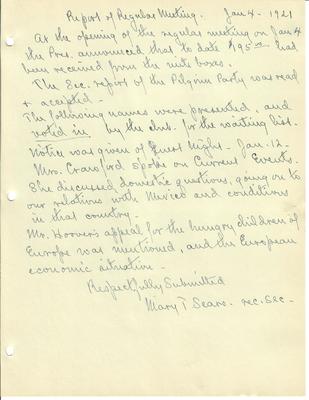 Report of Regular Meeting. Jan 4 - 1921
At the opening of the regular meeting on Jan 4
the Pres. announced that to date $195.00 had
been received from the mite boxes.
The Sec. report of the Pilgrim Party was read
+ accepted -
The following names were presented, and
voted in by the club for the waiting list.
Notice was given of Guest Night - Jan. 12 -
Mrs. Crawford spoke on Current Events.
She discussed domestic questions, going on to
our relations with Mexico and conditions
in that country.
Mr. Hoover's appeal for the hungry children of
Europe was mentioned, and the European
economic situation -
Respectfully Submitted
Mary T Sears - rec. Sec -